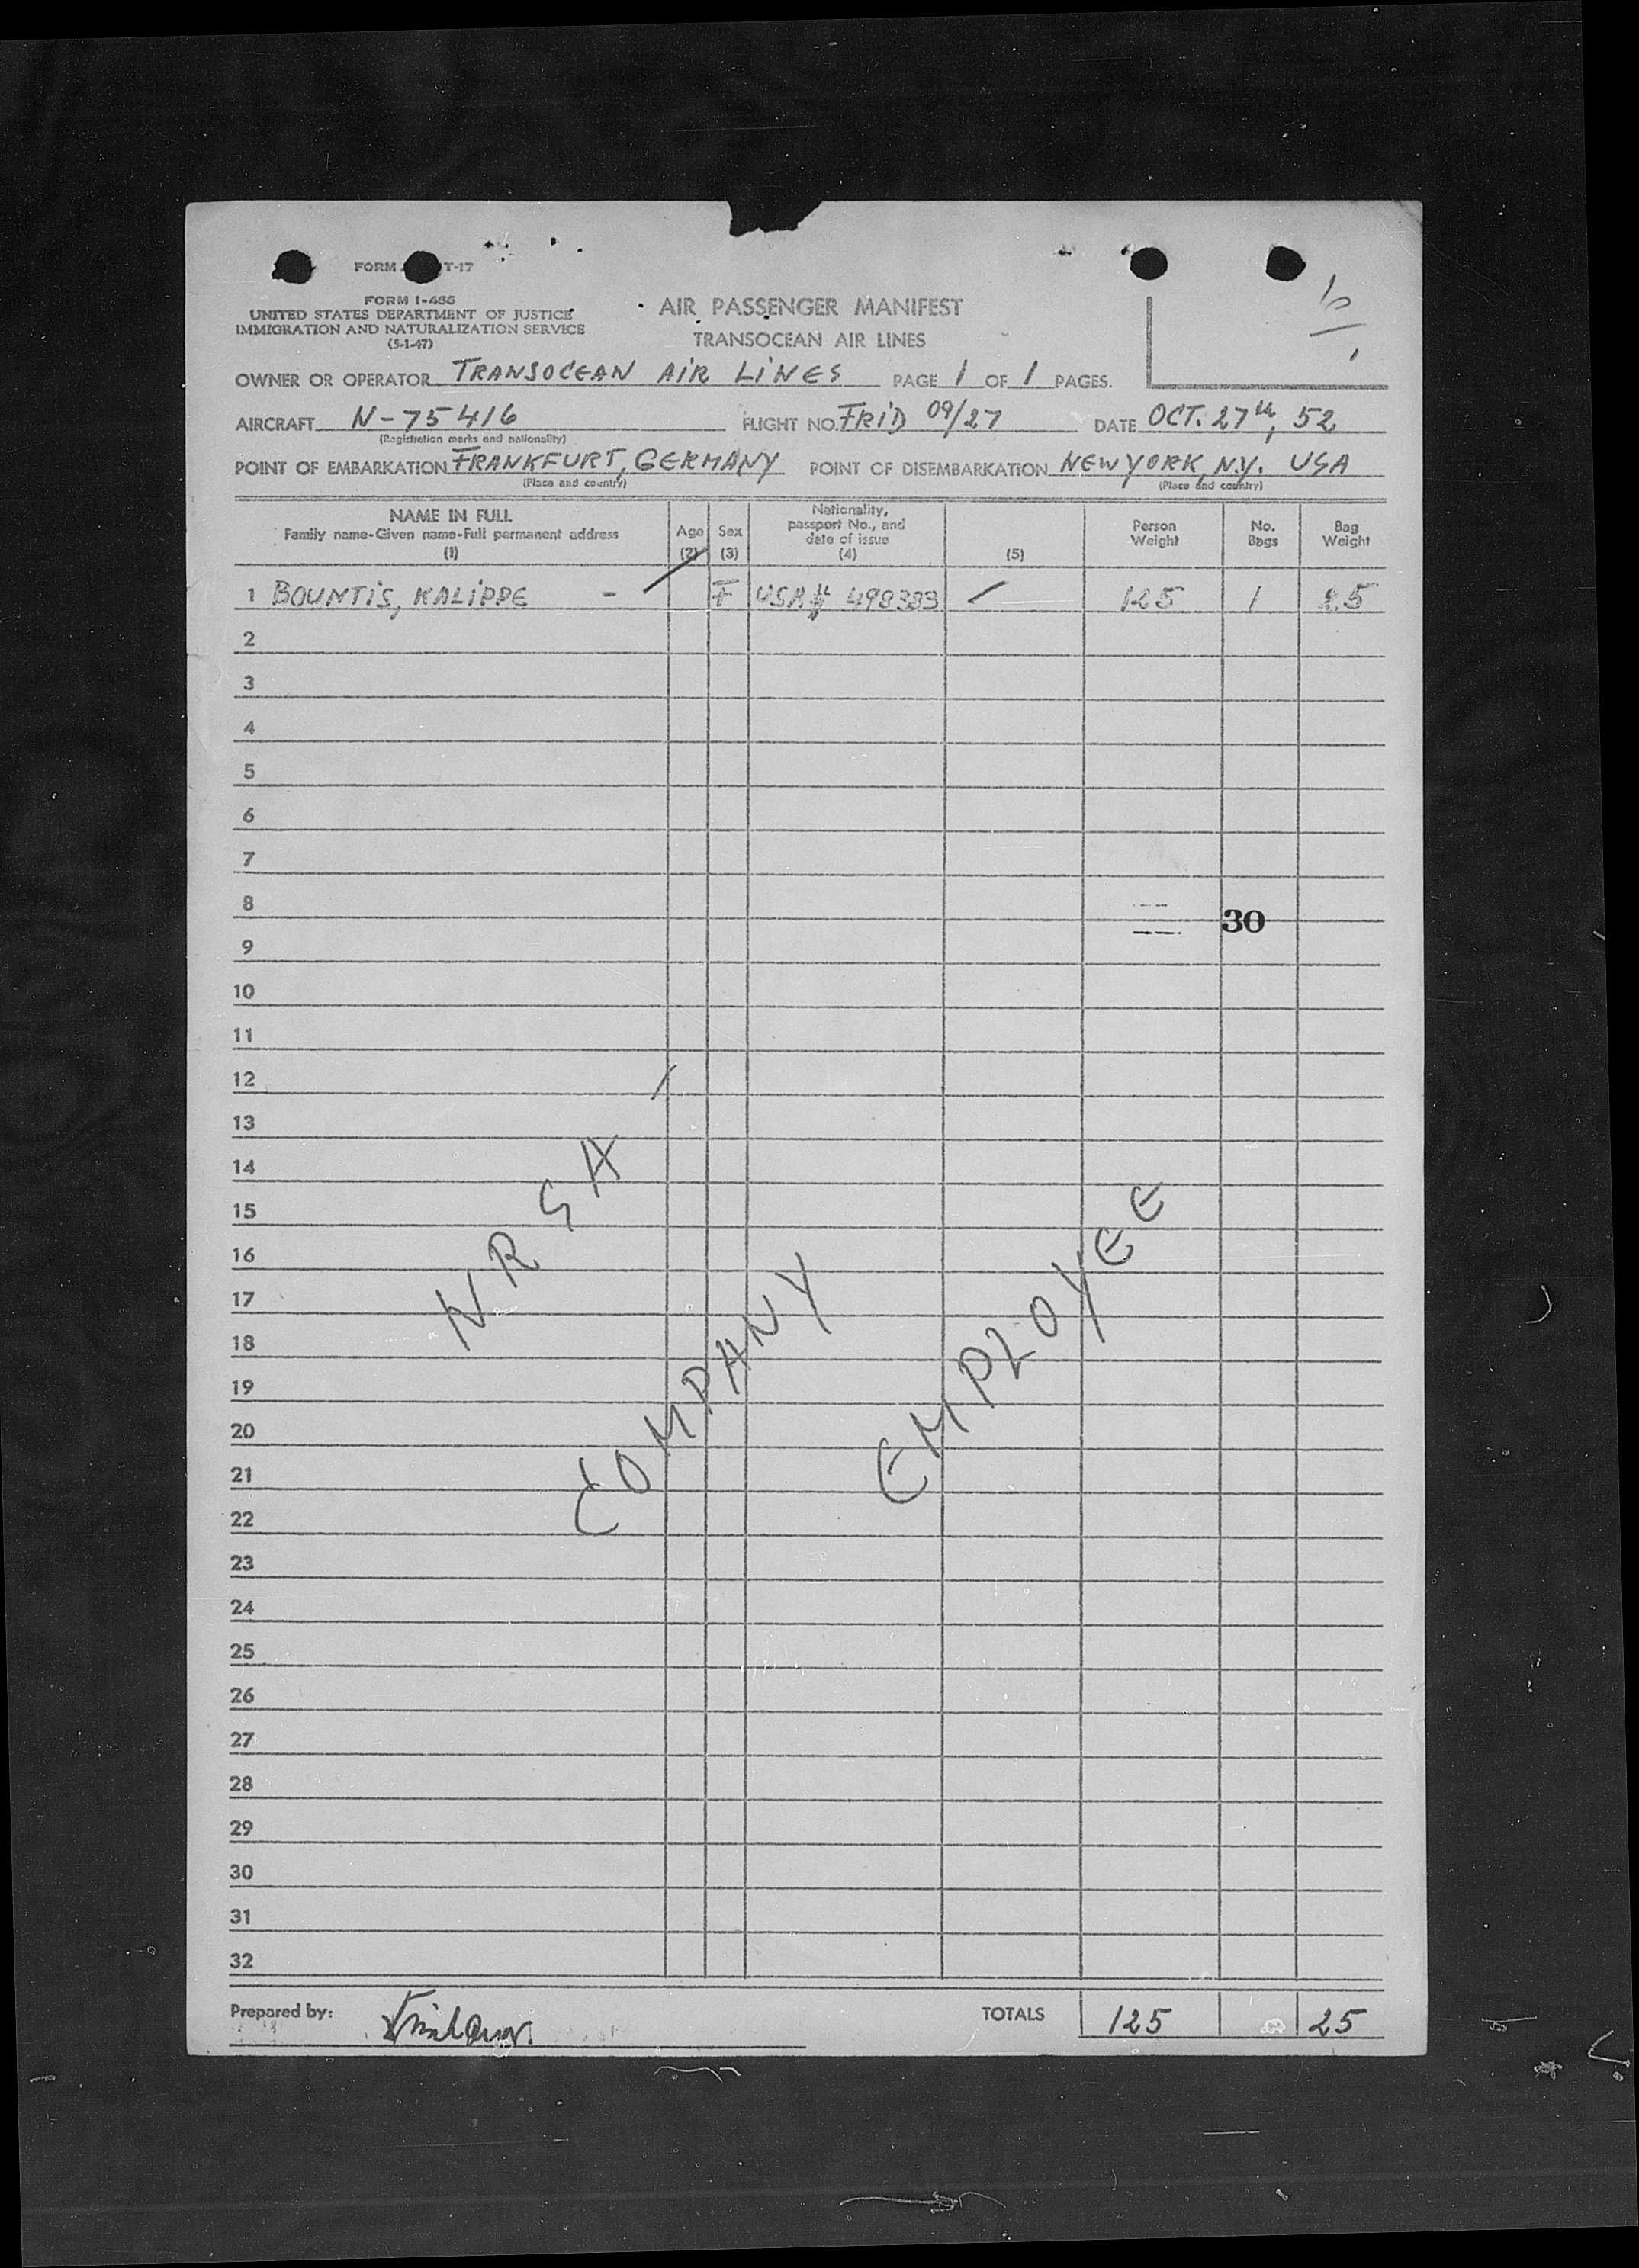 FORM T-17
FORM I-466
UNITED STATES DEPARTMENT OF JUSTICE
IMMIGRATION AND NATURALIZATION SERVICE
(5-1-47)
AIR PASSENGER MANIFEST
TRANSOCEAN AIR LINES
OWNER OR OPERATOR TRANSOCEAN AIR LINES PAGE 1 OF 1 PAGES.
AIRCRAFT N-75416 FLIGHT NO. FRID 09/27 DATE OCT. 27th, 52
(Registration marks and nationality)
POINT OF EMBARKATION FRANKFURT, GERMANY POINT OF DISEMBARKATION NEW YORK, N.Y. USA
(Place and country) (Place and country)
NAME IN FULL
Family name-Given name-Full permanent address
(1)
Age
(2)
Sex
(3)
Nationality,
passport No., and
date of issue
(4)
(5)
Person
Weight
No.
Bags
Bag
Weight
1 BOUNTIS, KALIPPE - F USA# 498383 125 1 25
2
3
4
5
6
7
8
30
9
10
11
12
13
14
15
16
17
18
19
20
21
22
23
24
25
26
27
28
29
30
31
32
N R G A
COMPANY
EMPLOYEE
Prepared by:
TOTALS 125 25